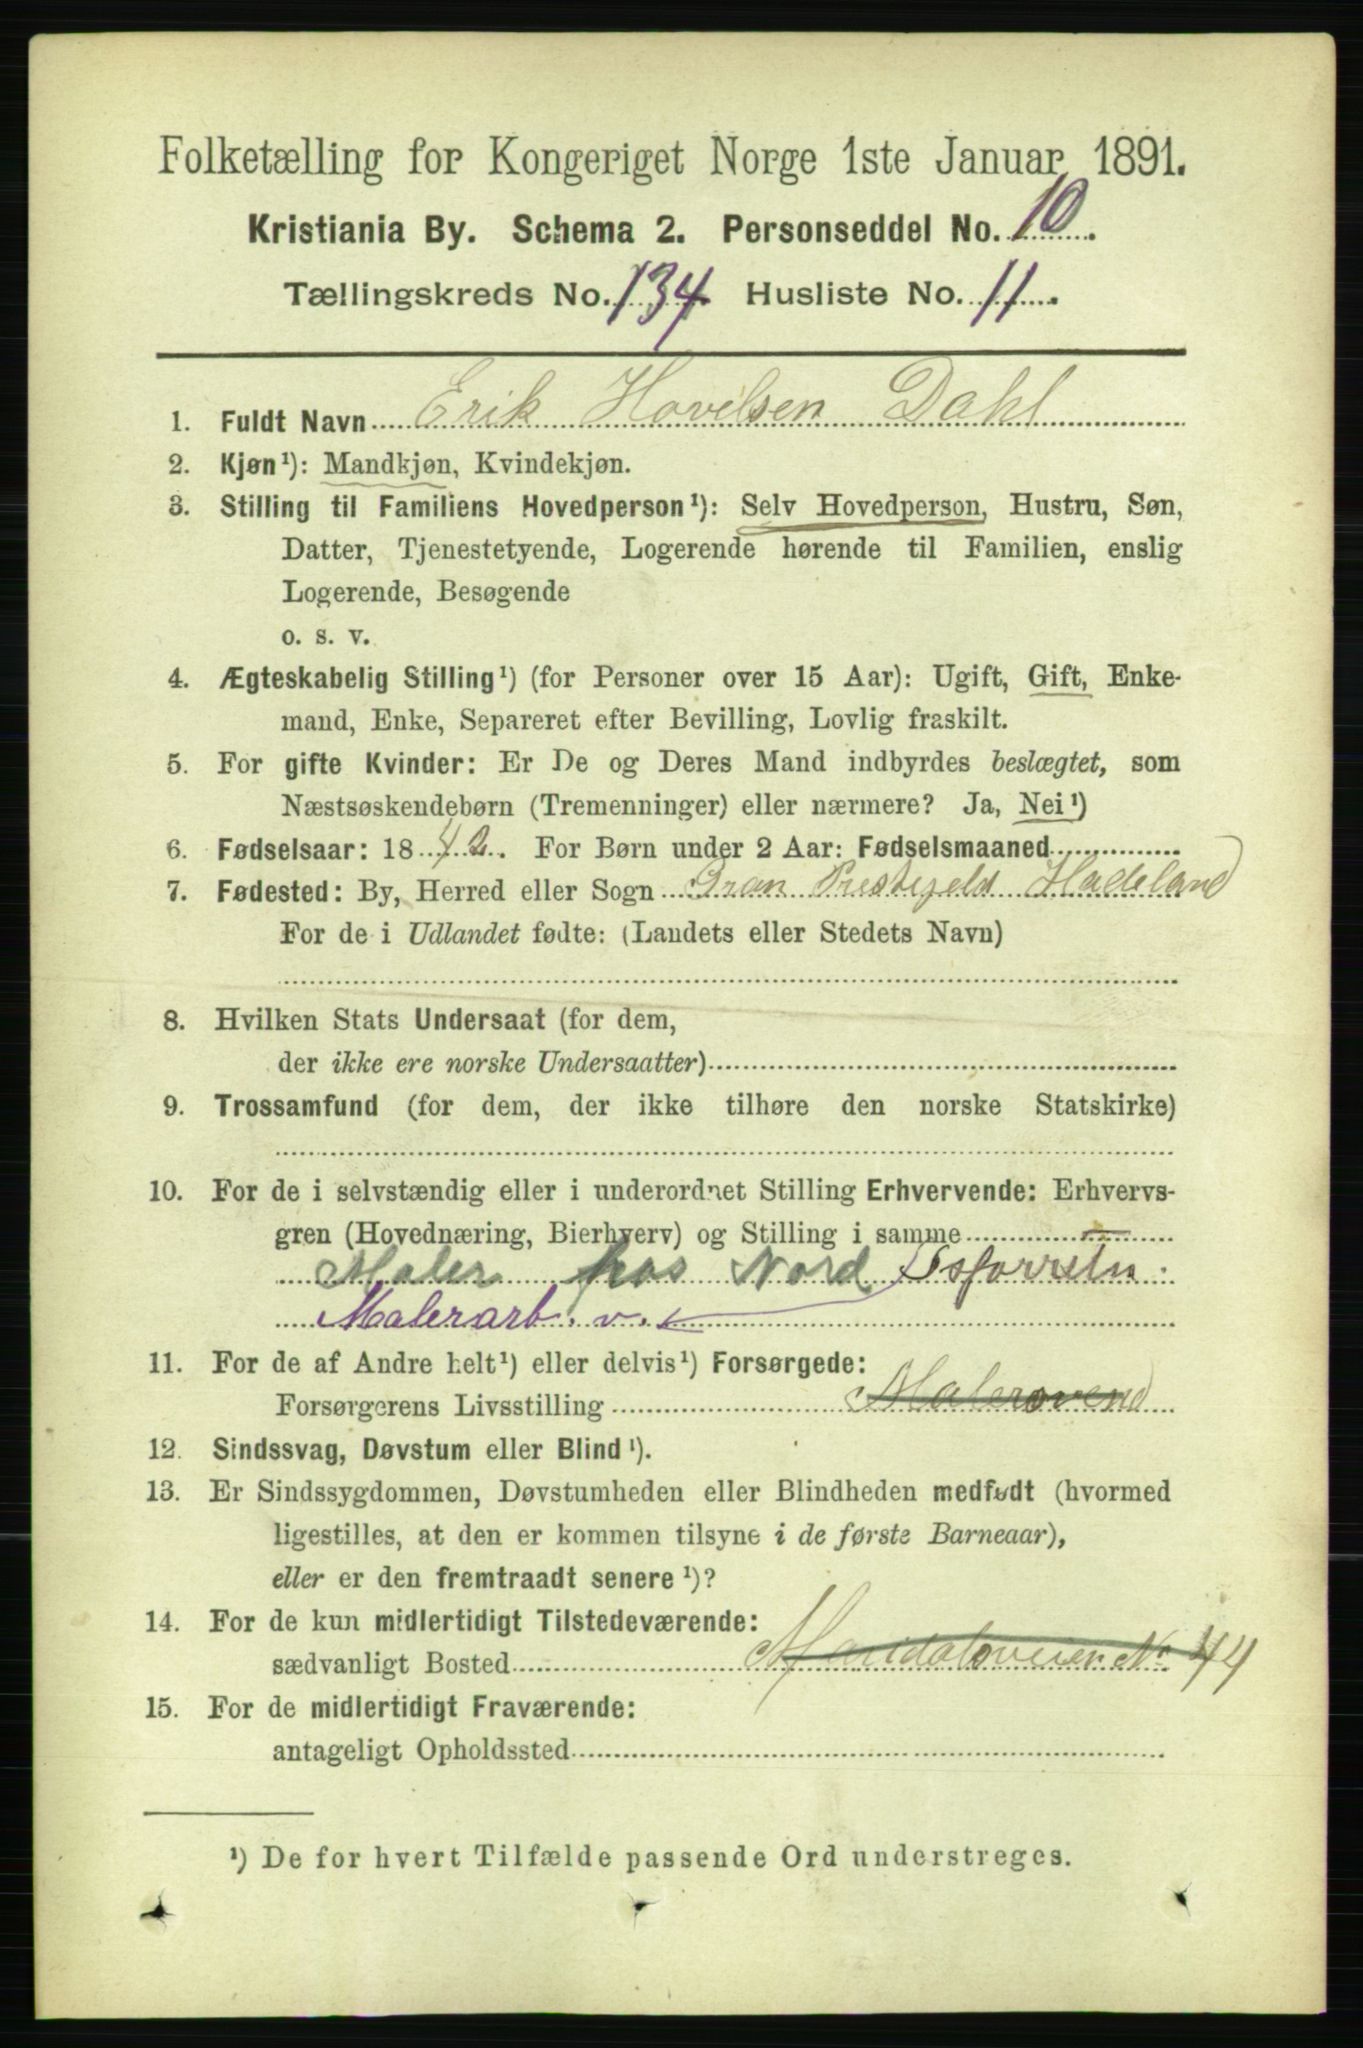 Folketælling for Kongeriget Norge 1ste Januar 1891.
Kristiania By. Schema 2. Personseddel No. 10.
Tællingskreds No. 134. Husliste No. 11.
1. Fuldt Navn Erik Hovelsen Dahl
2. Kjøn¹): Mandkjøn, Kvindekjøn.
3. Stilling til Familiens Hovedperson¹): Selv Hovedperson, Hustru, Søn,
Datter, Tjenestetyende, Logerende hørende til Familien, enslig
Logerende, Besøgende
o. s. v.
4. Ægteskabelig Stilling¹) (for Personer over 15 Aar): Ugift, Gift, Enke-
mand, Enke, Separeret efter Bevilling, Lovlig fraskilt.
5. For gifte Kvinder: Er De og Deres Mand indbyrdes beslægtet, som
Næstsøskendebørn (Tremenninger) eller nærmere? Ja, Nei¹)
6. Fødselsaar: 1842. For Børn under 2 Aar: Fødselsmaaned
7. Fødested: By, Herred eller Sogn Gran Prestegjeld Hadeland
For de i Udlandet fødte: (Landets eller Stedets Navn)
8. Hvilken Stats Undersaat (for dem,
der ikke ere norske Undersaatter)
9. Trossamfund (for dem, der ikke tilhøre den norske Statskirke)
10. For de i selvstændig eller i underordnet Stilling Erhvervende: Erhvervs-
gren (Hovednæring, Bierhverv) og Stilling i samme
Maler hos Nord
Malerarb. v.
11. For de af Andre helt¹) eller delvis¹) Forsørgede:
Forsørgerens Livsstilling Malersvend
12. Sindssvag, Døvstum eller Blind¹).
13. Er Sindssygdommen, Døvstumheden eller Blindheden medfødt (hvormed
ligestilles, at den er kommen tilsyne i de første Barneaar),
eller er den fremtraadt senere¹)?
14. For de kun midlertidigt Tilstedeværende:
sædvanligt Bosted Maridalsveien No 44
15. For de midlertidigt Fraværende:
antageligt Opholdssted
¹) De for hvert Tilfælde passende Ord understreges.